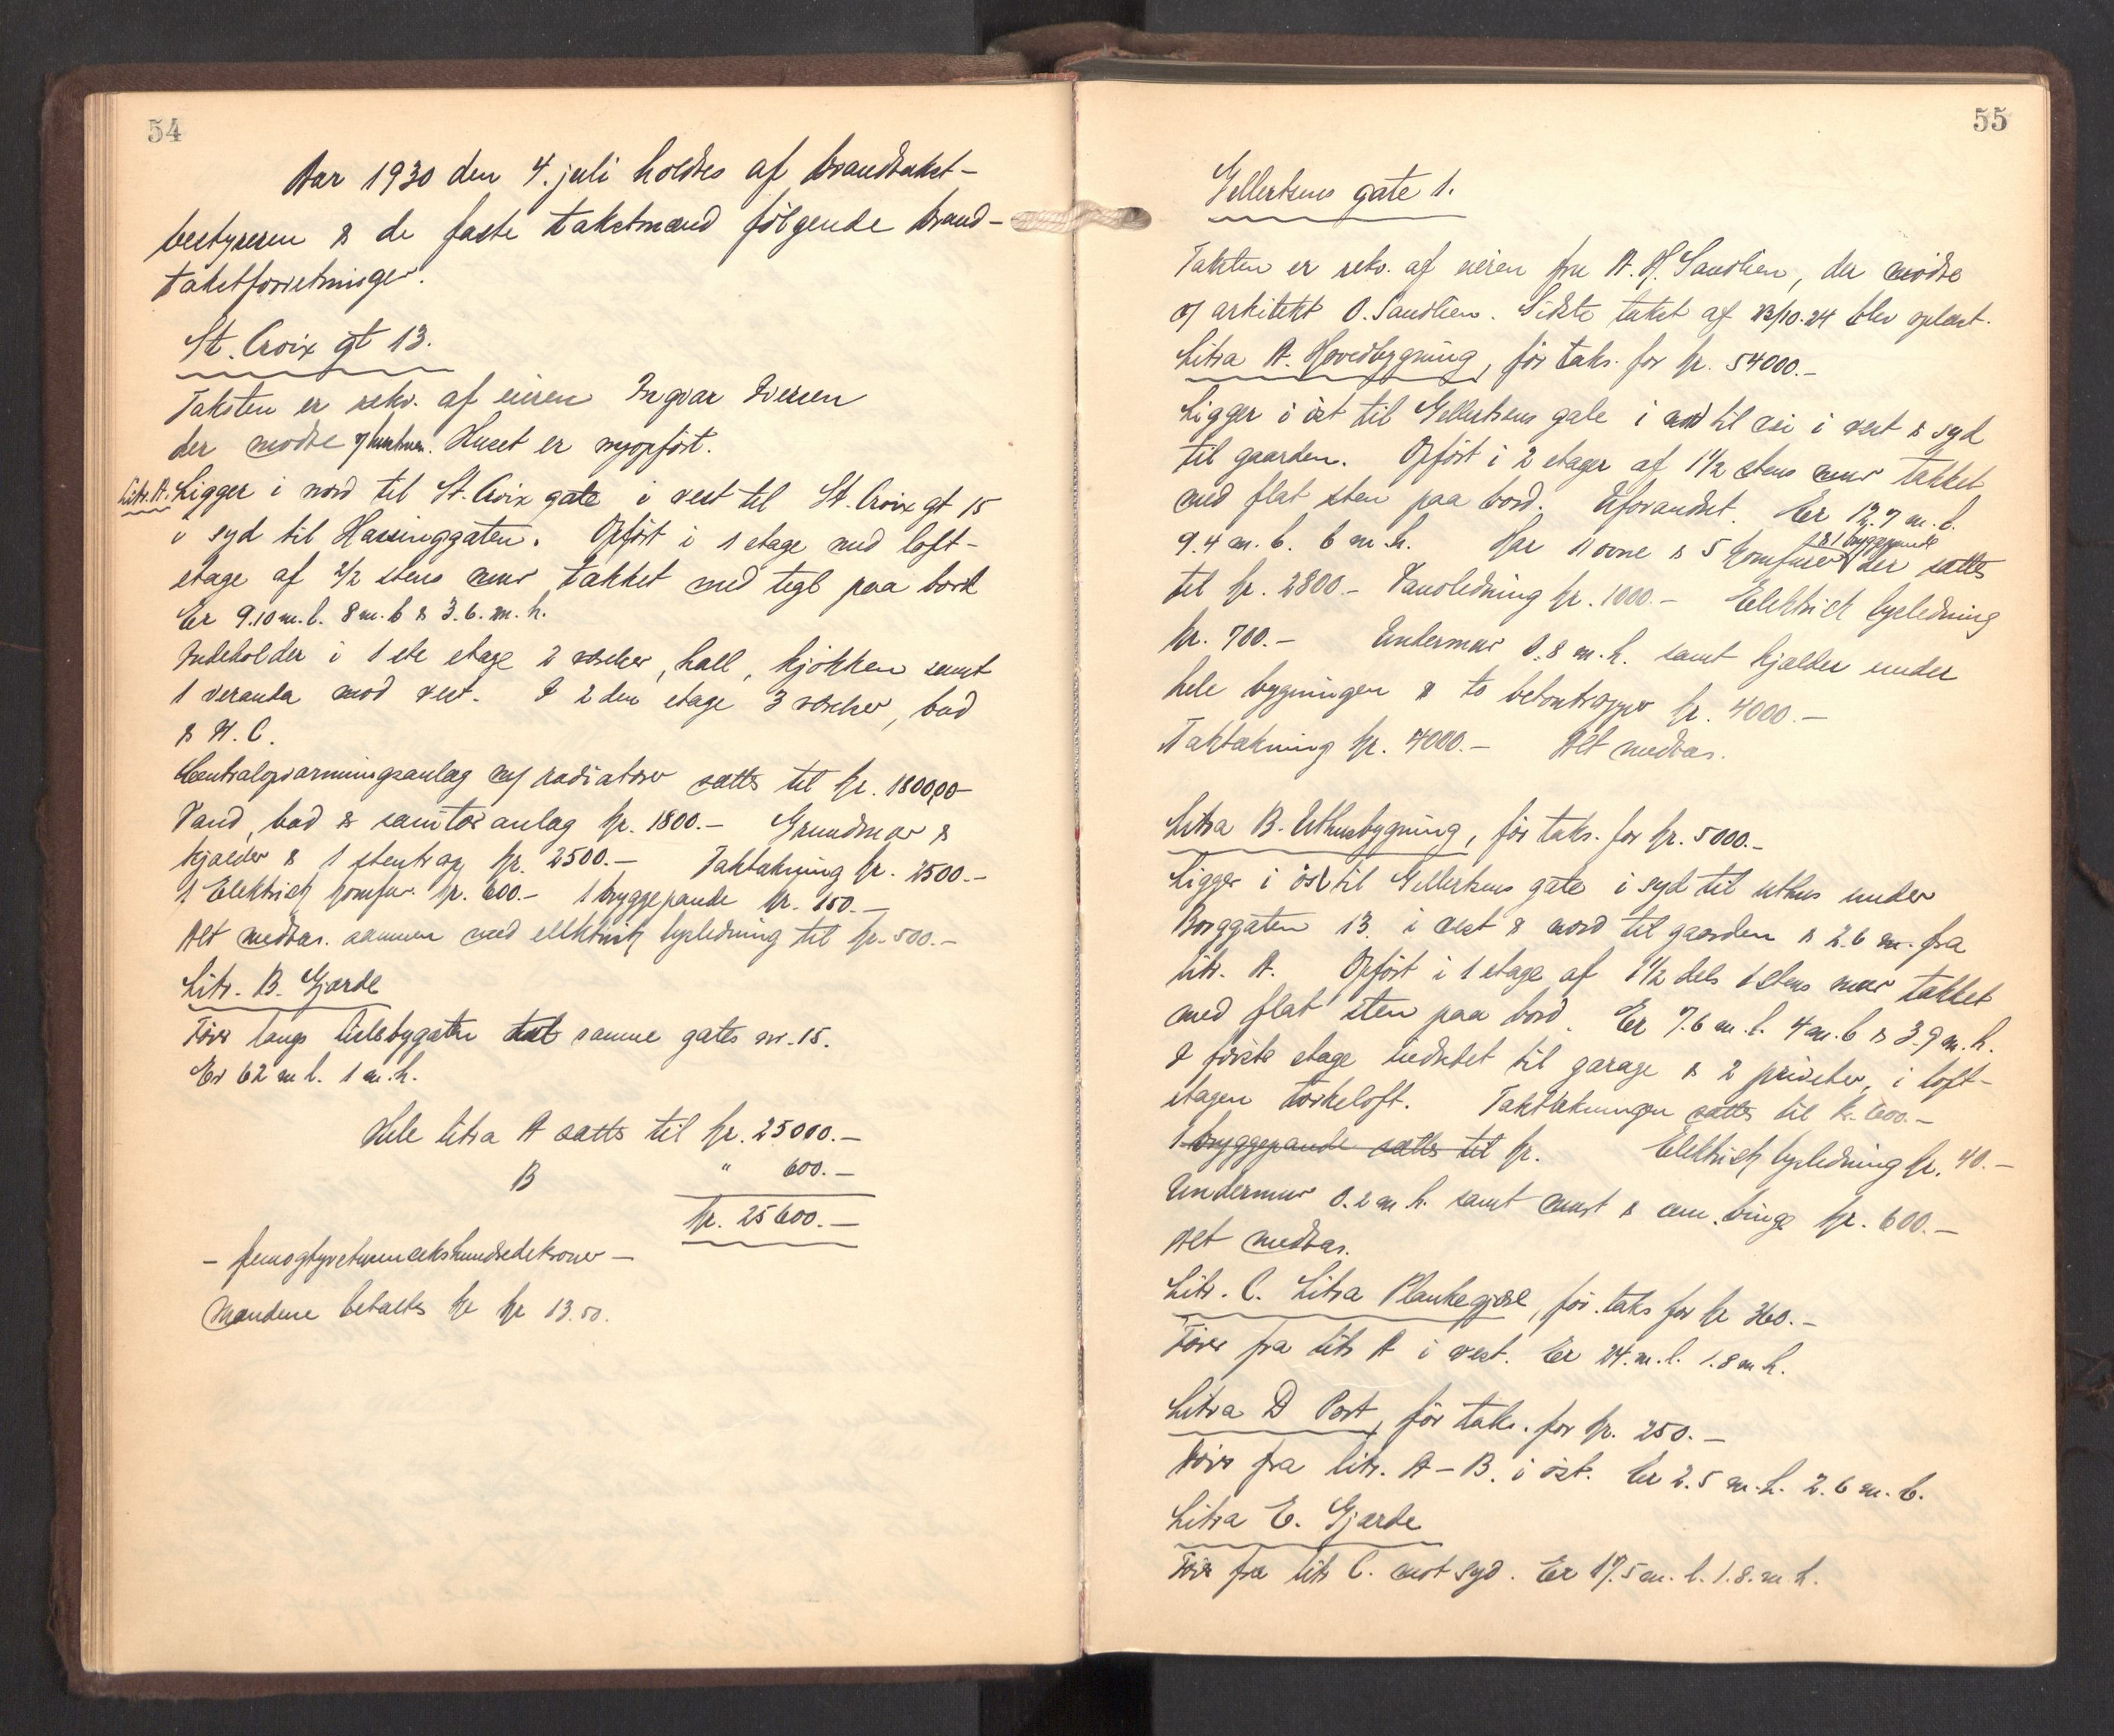 54
Aar 1930 den 4. juli holdtes af brandtakst-
bestyreren & de faste takstmænd følgende brand-
takstforretninger.
St. Croix gt 13.
Taksten er rekv. af eieren Ingvar Iversen
der mødte Huset er nyopført.
Litr. A. Ligger i nord til St. Croix gate i vest til St. Croix gt 15
i syd til Hassinggaten. Opført i 1 etage med loft-
etage af 2/2 stens mur takket med tegl paa bord
Er 9.10 m. l. 8 m. b & 3.6. m. h.
Indeholder i 1ste etage 2 værelser, hall, kjøkken samt
1 veranda mod vest. I 2den etage 3 værelser, bad
& W. C.
Centralopvarmningsanlæg m/ radiatorer sættes til kr. 1800,00
Vand, bad & sanitær anlæg kr. 1800.- Grundmur &
kjælder & 1 stentrap kr. 2500.- Taktækning kr. 2500.-
1 Elektrisk komfur kr. 600.- 1 bryggepande kr. 150.-
Alt medtas. sammen med elektrisk lysledning til kr. 500.-
Litr. B. Gjærde
Fører langs samme gates nr. 15.
Er 62 m l. 1 m. h.
Hele litra A sættes til kr. 25000.-
B " 600.-
kr. 25600.-
- femogtyvetusensekshundredekroner -
Mændene betaltes kr 13.50.
55
Gellertsens gate 1.
Taksten er rekv. af eieren fru A. H. Sandlien, der mødte
m/ arkitekt O. Sandlien. Sidste takst af 23/10.24 blev oplæst.
Litra A. Hovedbygning, før taks. for kr. 54000.-
Ligger i øst til Gellertsens gate i nord til i vest & syd
til gaarden. Opført i 2 etager af 1 1/2 stens mur takket
med flat sten paa bord. Uforandret. Er 12.7 m. l.
9.4 m. b. 6 m. h. Har 11 ovne & 5 komfurer & 1 bryggepande der sættes
til kr. 2800.- Vandledning kr. 1000.- Elektrisk lysledning
kr. 700.- Undermur 0.8 m. h. samt kjælder under
hele bygningen & to betontrapper kr. 4000.-
Taktækning kr. 4000.- Alt medtas.
Litra B. Uthusbygning, før taks. for kr. 5000.-
Ligger i øst til Gellertsens gate i syd til uthus under
Borggaten 13. i vest & nord til gaarden & 2.6 m. fra
litr. A. Opført i 1 etage af 1 1/2 dels 1 stens mur takket
med flat sten paa bord. Er 7.6 m. l. 4 m. b & 3.9 m. h.
I første etage indredet til garage & 2 priveter, i loft-
etagen tørkeloft. Taktækningen sættes til kr. 600.-
1 bryggepande sættes til kr. Elektrisk lysledning kr. 40.-
Undermur 0.2 m h. samt binge kr. 600.-
Alt medtas.
Litr. C. Litra Plankegjerde, før. taks for kr 360.-
Fører fra litr A i vest. Er 24. m. l. 1.8 m h.
Litra D Port, før taks. for kr. 250.-
Fører fra litr. A - B. i øst. Er 2.5 m. h. 2.6 m. b.
Litra E. Gjærde
Fører fra litr C. mot syd. Er 17.5 m. l. 1.8. m. h.